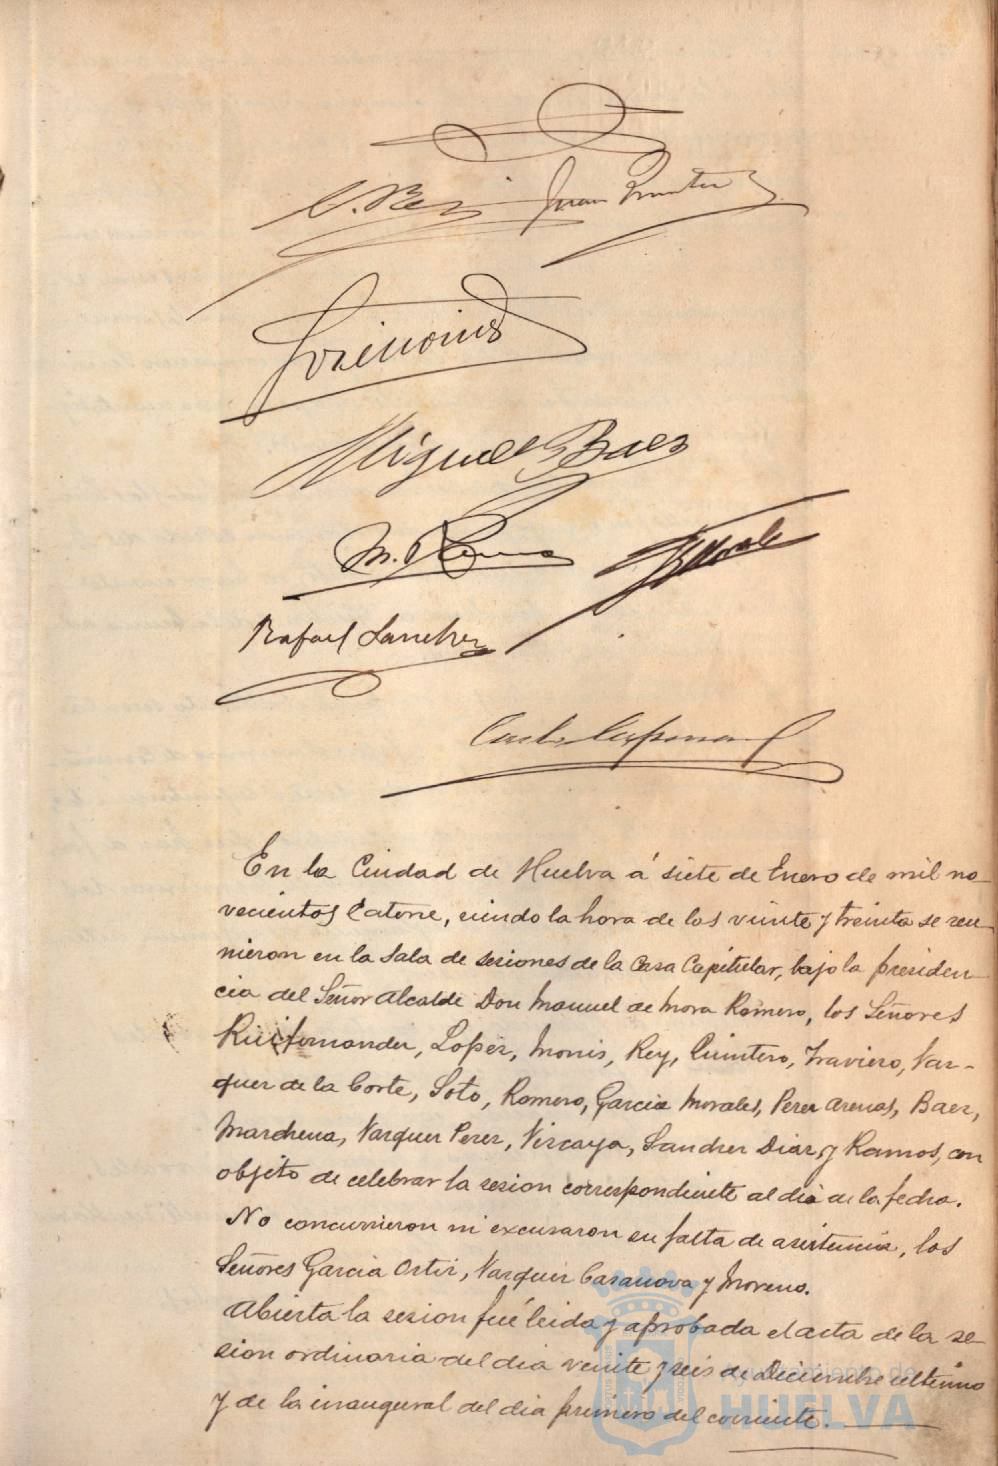 Juan Quintero
Miguel Baez
Rafael Sanchez
En la Ciudad de Huelva á siete de Enero de mil no-
vecientos Catorce, siendo la hora de las viinte y treinta se reu-
nieron en la Sala de sesiones de la Casa Capitular, bajo la presiden-
cia del Señor Alcalde Don Manuel de Mora Romero, los Señores
Ruifernandez, Lopez, Monis, Rey, Quintero, Traviero, Vaz-
quez de la Corte, Soto, Romero, Garcia Morales, Perez Arenas, Baez,
Marchena, Vazquez Perez, Vizcaya, Sanchez Diaz, y Ramos, con
objeto de celebrar la sesion correspondiente al dia de la fecha.
No concurrieron ni excusaron su falta de asistencia, los
Señores Garcia Ortiz, Vazquez Casanova y Moreno.
Abierta la sesion fué leida y aprobada el acta de la se-
sion ordinaria del dia veinte y seis de Diciembre ultimo
y de la inaugural del dia primero del corriente.
Ayuntamiento de
HUELVA